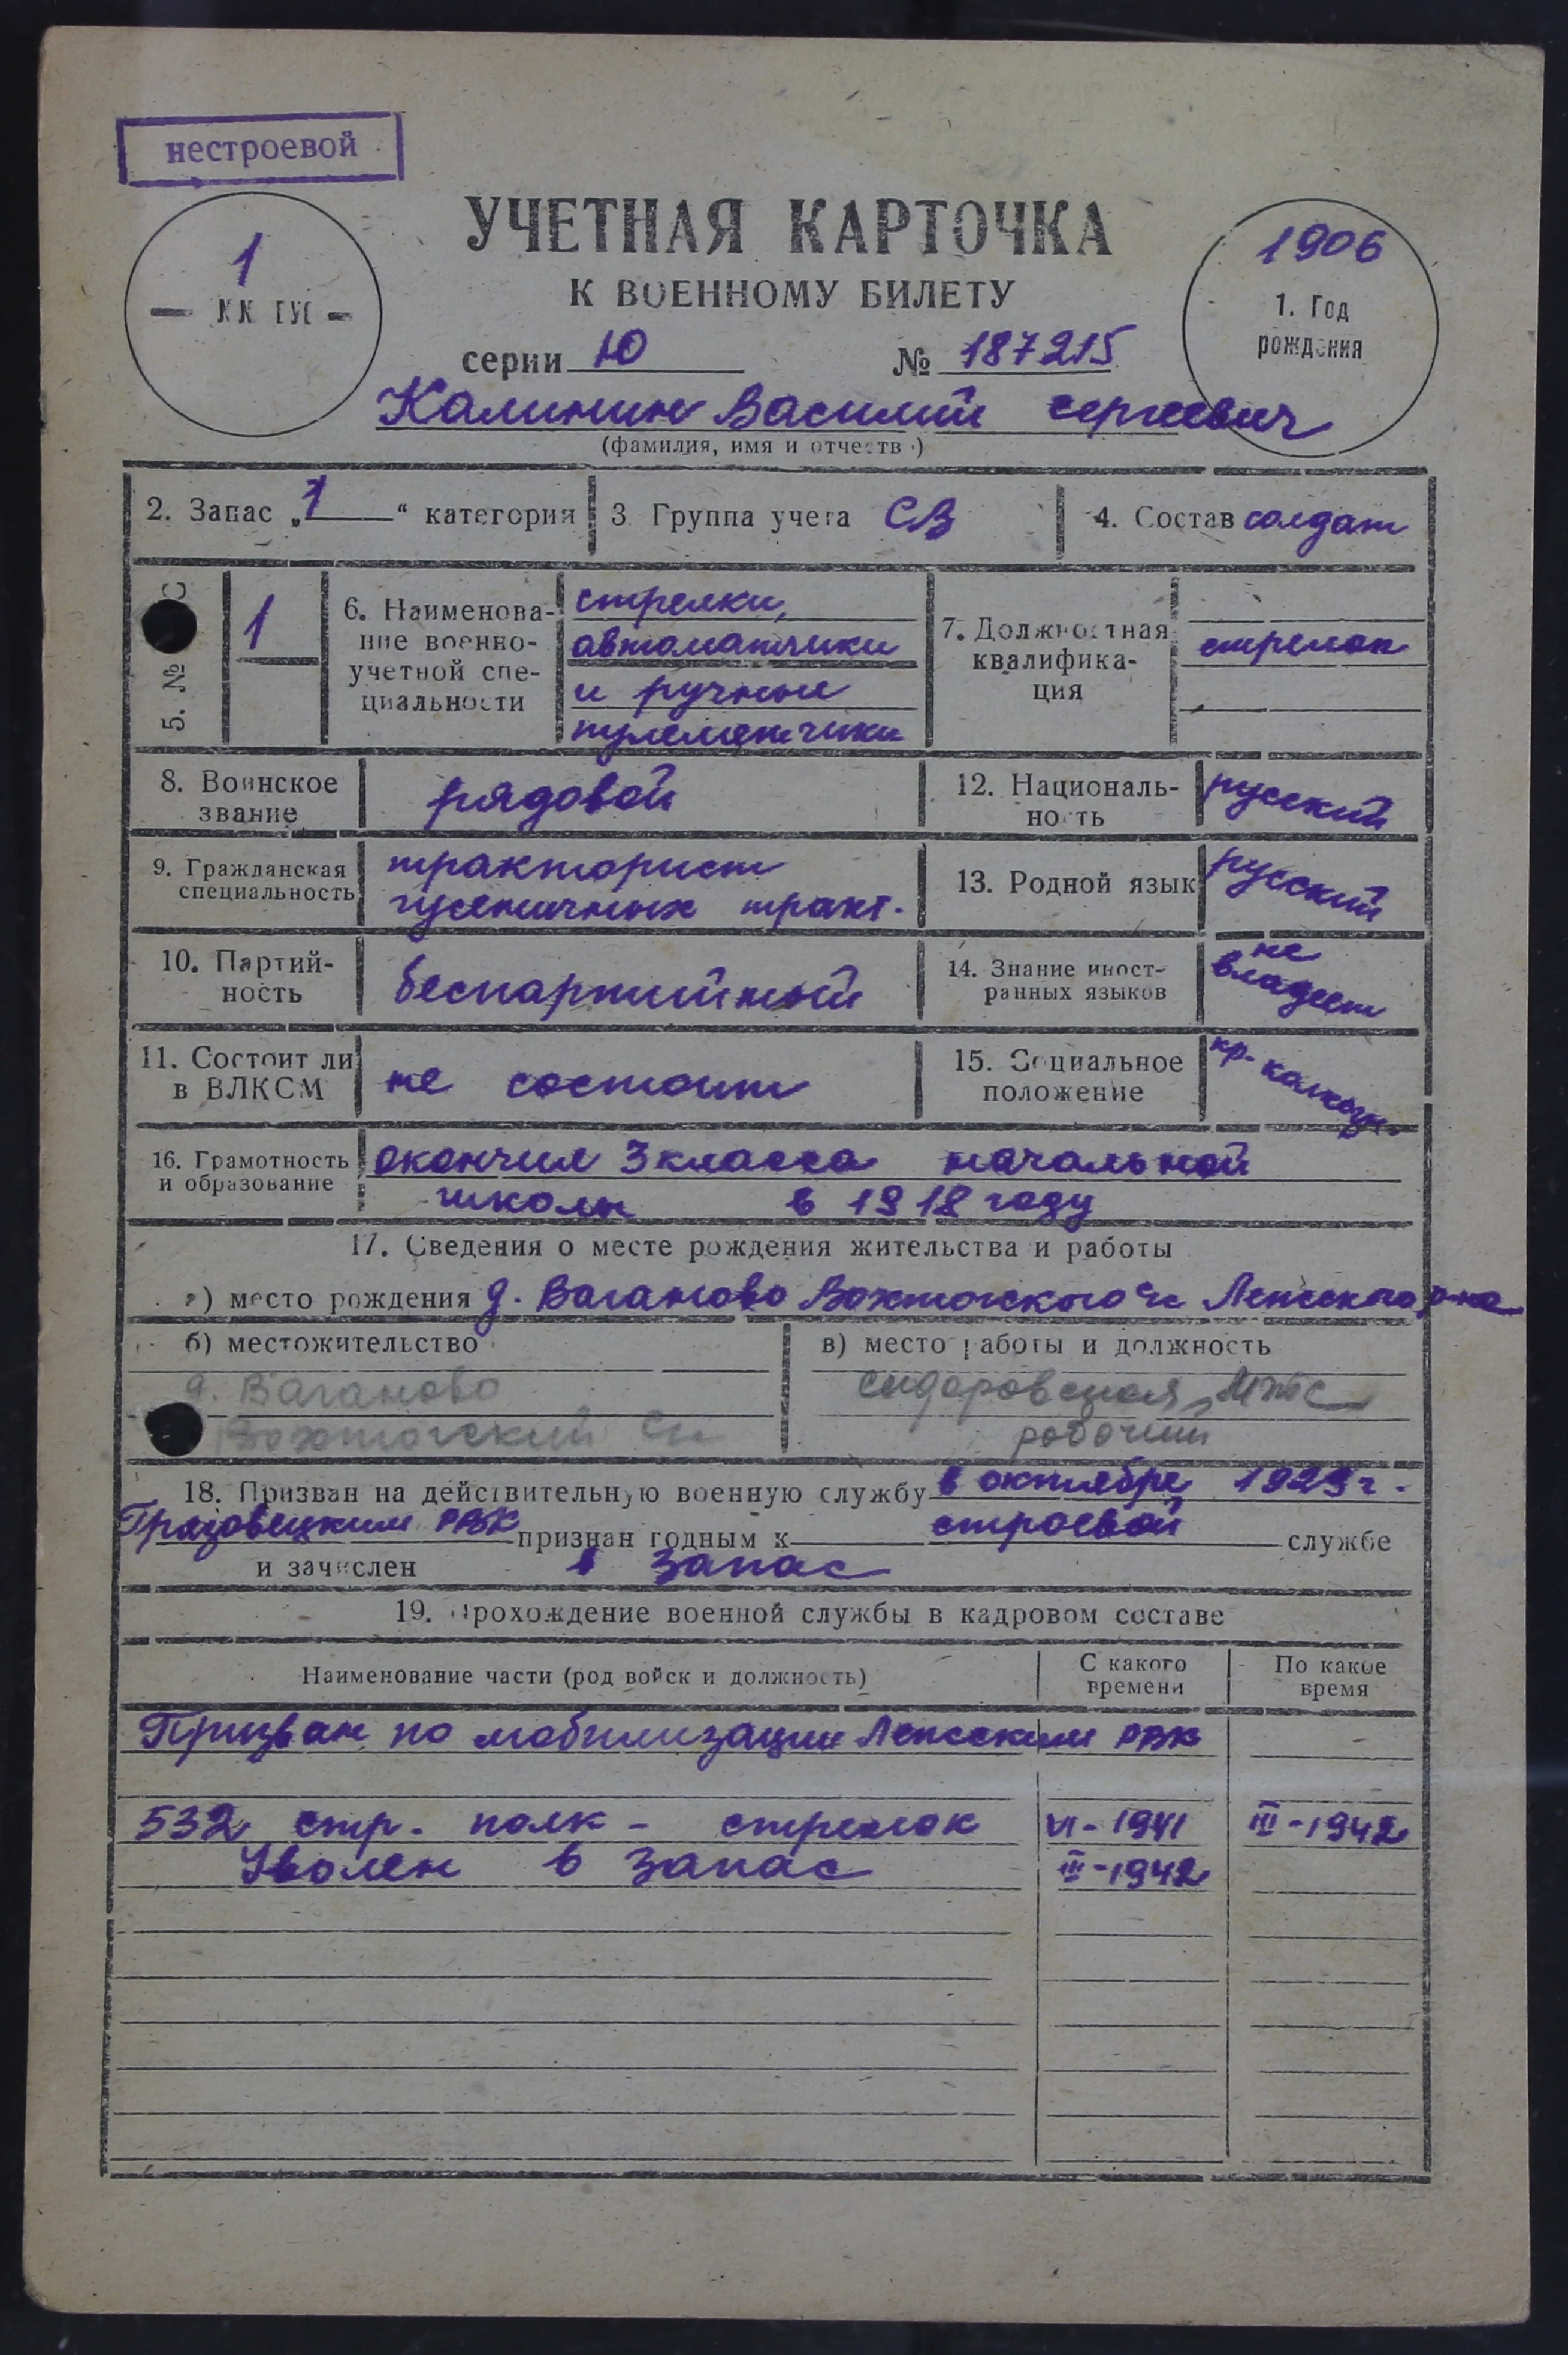 нестроевой
УЧЕТНАЯ КАРТОЧКА
К ВОЕННОМУ БИЛЕТУ
1
1906
1. Год
рождения
серии Ю № 187215
Калинин Василий Сергеевич
(фамилия, имя и отчеств )
2. Запас „1“ категория 3 Группа учета СВ 4. Состав солдат
5. № 1
6. Наименова-
ние военно-
учетной спе-
циальности
стрелки,
автоматчики
и ручные
пулеметчики
7. Должностная
квалифика-
ция
стрелок
8. Воинское
звание
рядовой
12. Националь-
ность
русский
9. Гражданская
специальность
тракторист
гусеничных тракт.
13. Родной язык
русский
10. Партий-
ность
беспартийный
14. Знание иност-
ранных языков
не
владеет
11. Состоит ли
в ВЛКСМ
не состоит
15. Социальное
положение
кр. колхозн.
16. Грамотность
и образование
окончил 3 класса начальной
школы в 1918 году
17. Сведения о месте рождения жительства и работы
а) место рождения д. Ваганово Вохтогского с/с Лежского р-на
б) местожительство
д. Ваганово
Вохтогский с/с
в) место работы и должность
Сидоровская МТС
рабочий
18. Призван на действительную военную службу в октябре 1929 г.
Грязовецким РВК признан годным к строевой службе
и зачислен в запас
19. Прохождение военной службы в кадровом составе
Наименование части (род войск и должность) С какого
времени По какое
время
Призван по мобилизации Лежским РВК
532 стр. полк - стрелок VI-1941 III-1942
Уволен в запас III-1942